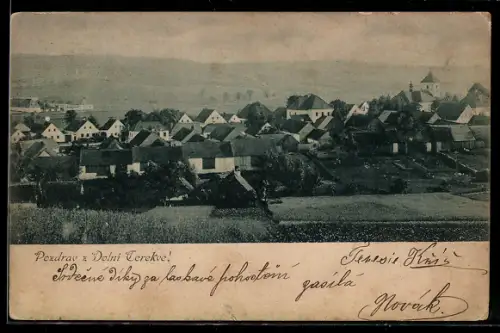 Pozdrav z Dolní Cerekve!
Srdečné díky za laskavé pohoštění
zasílá
Novák.